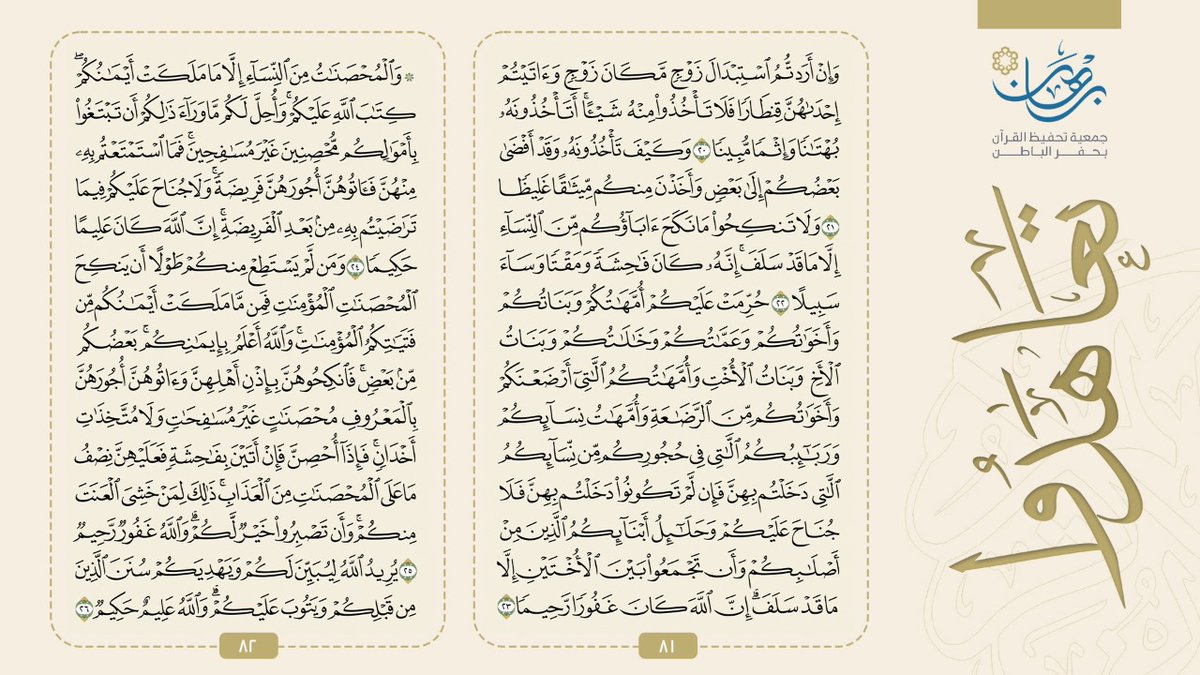 برهان
جمعية تحفيظ القرآن
بحفر الباطن
تعاهدوا
وَإِنْ أَرَدتُّمُ ٱسْتِبْدَالَ زَوْجٍ مَّكَانَ زَوْجٍ وَءَاتَيْتُمْ
إِحْدَىٰهُنَّ قِنطَارًا فَلَا تَأْخُذُوا۟ مِنْهُ شَيْـًٔا ۚ أَتَأْخُذُونَهُۥ
بُهْتَـٰنًا وَإِثْمًا مُّبِينًا ٢٠ وَكَيْفَ تَأْخُذُونَهُۥ وَقَدْ أَفْضَىٰ
بَعْضُكُمْ إِلَىٰ بَعْضٍ وَأَخَذْنَ مِنكُم مِّيثَـٰقًا غَلِيظًا
٢١ وَلَا تَنكِحُوا۟ مَا نَكَحَ ءَابَآؤُكُم مِّنَ ٱلنِّسَآءِ
إِلَّا مَا قَدْ سَلَفَ ۚ إِنَّهُۥ كَانَ فَـٰحِشَةً وَمَقْتًا وَسَآءَ
سَبِيلًا ٢٢ حُرِّمَتْ عَلَيْكُمْ أُمَّهَـٰتُكُمْ وَبَنَاتُكُمْ
وَأَخَوَٰتُكُمْ وَعَمَّـٰتُكُمْ وَخَـٰلَـٰتُكُمْ وَبَنَاتُ
ٱلْأَخِ وَبَنَاتُ ٱلْأُخْتِ وَأُمَّهَـٰتُكُمُ ٱلَّـٰتِىٓ أَرْضَعْنَكُمْ
وَأَخَوَٰتُكُم مِّنَ ٱلرَّضَـٰعَةِ وَأُمَّهَـٰتُ نِسَآئِكُمْ
وَرَبَـٰٓئِبُكُمُ ٱلَّـٰتِى فِى حُجُورِكُم مِّن نِّسَآئِكُمُ
ٱلَّـٰتِى دَخَلْتُم بِهِنَّ فَإِن لَّمْ تَكُونُوا۟ دَخَلْتُم بِهِنَّ فَلَا
جُنَاحَ عَلَيْكُمْ وَحَلَـٰٓئِلُ أَبْنَآئِكُمُ ٱلَّذِينَ مِنْ
أَصْلَـٰبِكُمْ وَأَن تَجْمَعُوا۟ بَيْنَ ٱلْأُخْتَيْنِ إِلَّا
مَا قَدْ سَلَفَ ۗ إِنَّ ٱللَّهَ كَانَ غَفُورًا رَّحِيمًا ٢٣
٨١
۞ وَٱلْمُحْصَنَـٰتُ مِنَ ٱلنِّسَآءِ إِلَّا مَا مَلَكَتْ أَيْمَـٰنُكُمْ ۖ
كِتَـٰبَ ٱللَّهِ عَلَيْكُمْ ۚ وَأُحِلَّ لَكُم مَّا وَرَآءَ ذَٰلِكُمْ أَن تَبْتَغُوا۟
بِأَمْوَٰلِكُم مُّحْصِنِينَ غَيْرَ مُسَـٰفِحِينَ ۚ فَمَا ٱسْتَمْتَعْتُم بِهِۦ
مِنْهُنَّ فَـَٔاتُوهُنَّ أُجُورَهُنَّ فَرِيضَةً ۚ وَلَا جُنَاحَ عَلَيْكُمْ فِيمَا
تَرَٰضَيْتُم بِهِۦ مِنۢ بَعْدِ ٱلْفَرِيضَةِ ۚ إِنَّ ٱللَّهَ كَانَ عَلِيمًا
حَكِيمًا ٢٤ وَمَن لَّمْ يَسْتَطِعْ مِنكُمْ طَوْلًا أَن يَنكِحَ
ٱلْمُحْصَنَـٰتِ ٱلْمُؤْمِنَـٰتِ فَمِن مَّا مَلَكَتْ أَيْمَـٰنُكُم مِّن
فَتَيَـٰتِكُمُ ٱلْمُؤْمِنَـٰتِ ۚ وَٱللَّهُ أَعْلَمُ بِإِيمَـٰنِكُم ۚ بَعْضُكُم
مِّنۢ بَعْضٍ ۚ فَٱنكِحُوهُنَّ بِإِذْنِ أَهْلِهِنَّ وَءَاتُوهُنَّ أُجُورَهُنَّ
بِٱلْمَعْرُوفِ مُحْصَنَـٰتٍ غَيْرَ مُسَـٰفِحَـٰتٍ وَلَا مُتَّخِذَٰتِ
أَخْدَانٍ ۚ فَإِذَآ أُحْصِنَّ فَإِنْ أَتَيْنَ بِفَـٰحِشَةٍ فَعَلَيْهِنَّ نِصْفُ
مَا عَلَى ٱلْمُحْصَنَـٰتِ مِنَ ٱلْعَذَابِ ۚ ذَٰلِكَ لِمَنْ خَشِىَ ٱلْعَنَتَ
مِنكُمْ ۚ وَأَن تَصْبِرُوا۟ خَيْرٌ لَّكُمْ ۗ وَٱللَّهُ غَفُورٌ رَّحِيمٌ
٢٥ يُرِيدُ ٱللَّهُ لِيُبَيِّنَ لَكُمْ وَيَهْدِيَكُمْ سُنَنَ ٱلَّذِينَ
مِن قَبْلِكُمْ وَيَتُوبَ عَلَيْكُمْ ۗ وَٱللَّهُ عَلِيمٌ حَكِيمٌ ٢٦
٨٢